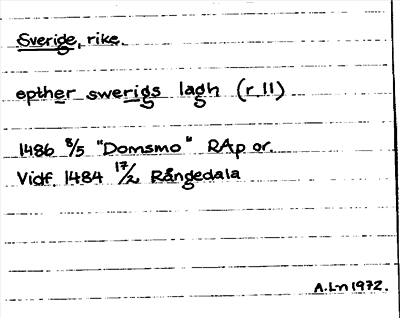 Sverige, rike.
epther swerigs lagh (r 11)
1486 8/5 "Domsmo" RAp or.
Vidf. 1484 17/2 Rångedala
A.Ln 1972.